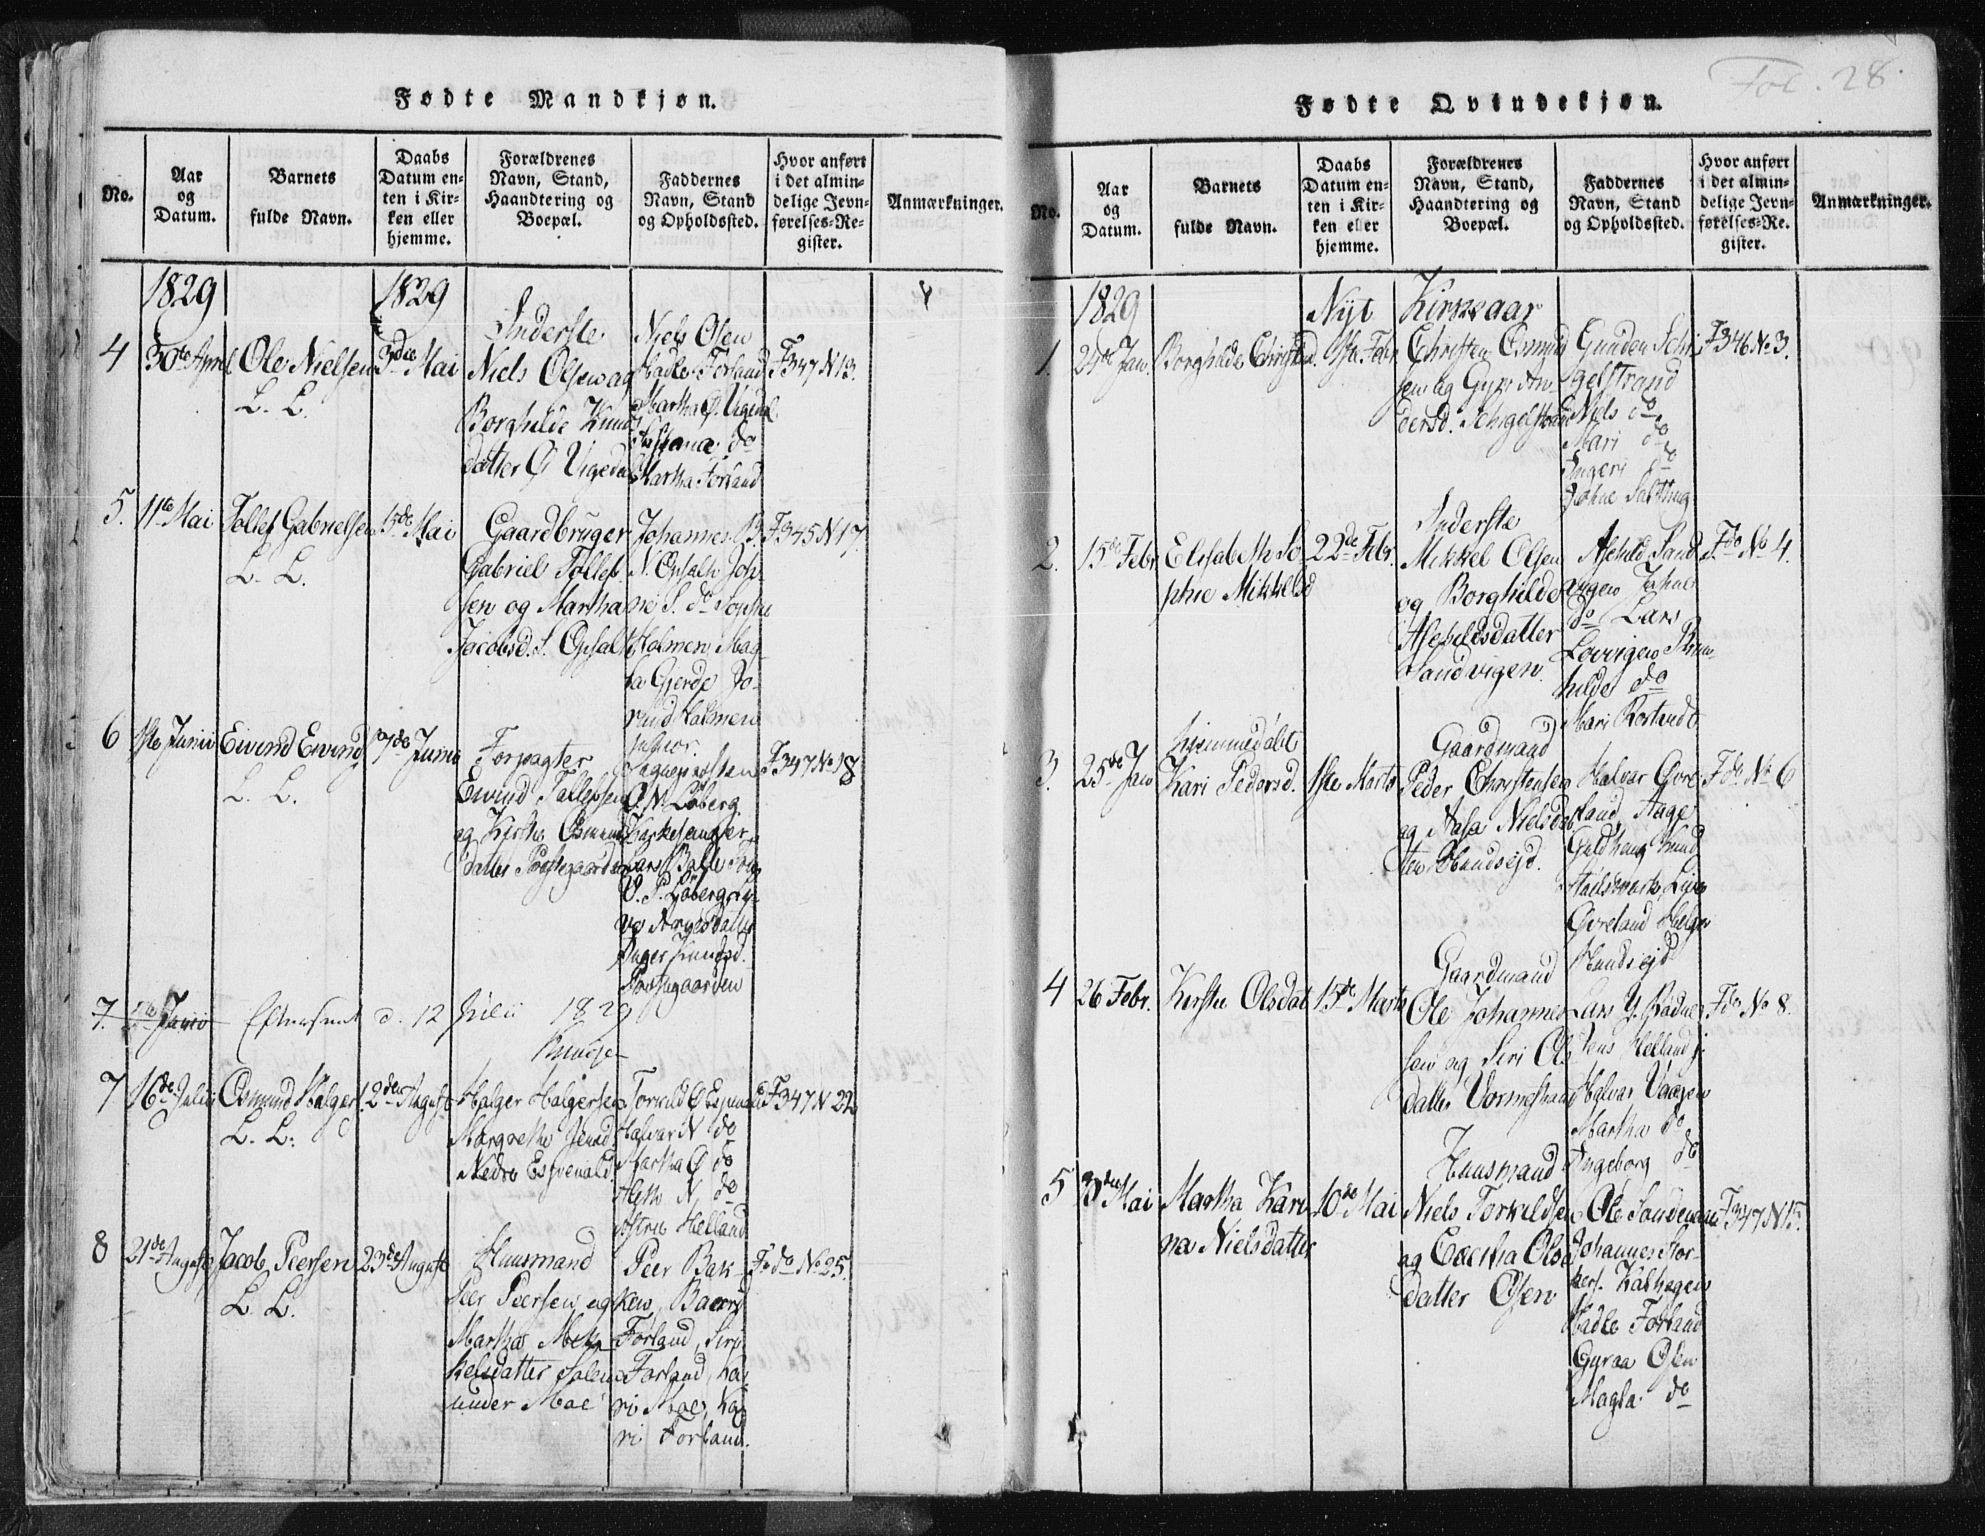 Fødte Mandkjøn.
No.
Aar
og
Datum.
Barnets
fulde Navn.
Daabs
Datum en-
ten i Kir-
ken eller
hjemme.
Forældrenes
Navn, Stand,
Haandtering og
Boepæl.
Faddernes
Navn, Stand
og Opholdssted.
Hvor anført
i det almin-
delige Jevn-
førelses-Re-
gister.
Anmærkninger.
1829
1829
4
30te April
Ole Nielsen
L. L.
3die Mai
Inderste
Niels Olsen og
Borghilde Knuds
datter Ø Vigedal
Niels Olsen
Hadle Forland
Martha Ø. Vigedal
do
Martha Forland
F347 N13.
5.
11te Mai
Tollef Gabrielsen
L. L.
15de Mai
Gaardbruger
Gabriel Tollef
sen og Martha
Jacobsd. S. Opsalt
Johannes B.
N. Opsalt Jos-
ne S. do Sophie
Holmen, Mag-
la Gjerde Jo-
rund Holmen
F345 N17.
6
1ste Junii
Eivind Eivinds
L. L.
7de Junii
Forpagter
Eivind Tallefsen
og Kirstha Osmunds
datter Præstegaarden
Sognepræsten
O. N. Løberg
Kirkesanger
Lars Balle
V. P. Løberg
Inger Knudsd.
Præstegaarden
F347 No 18
7.
Junii
Efterseet d. 12 Julii 1829
7
16de Julii
Osmund Halgers.
L. L.
2den August
Halger Halgersen
Margrethe Jensd.
Nedre Espevold
Torkild Ø Espevold
Halvar N do
Martha Ø do
N. do
Helland
F347 N 22
8
21de August
Jacob Peersen
L. L.
23de August
Huusmand
Peer Peersen og
Martha Mik
kelsdatter Solem
under Moe
Peer Bak-
ken, Baard
Forland, Siri
Forland, Ka-
ri Moe, Ka
ri Forland.
F. do No 25.
Fol. 28.
Fødte Qvindekjøn.
No.
Aar
og
Datum.
Barnets
fulde Navn.
Daabs
Datum en-
ten i Kir-
ken eller
hjemme.
Forældrenes
Navn, Stand,
Haandtering og
Boepæl.
Faddernes
Navn, Stand
og Opholdssted.
Hvor anført
i det almin-
delige Jevn-
førelses-Re-
gister.
Anmærkninger.
1829
Nyt Kirkeaar
1.
Jan.
Borghilde Christend.
Febr.
Christen Osmund
sen og Gyri An-
dersd. Schigelstrand
Gunden Schi-
gelstrand
Niels do
Mari do
Ingeri do
F346 No 3.
2.
15de Febr.
Elisabeth So-
phie Mikkelsd
22de Febr.
Inderste
Mikkel Olsen
og Borghilde
Aschildsdatter
Sandvigen.
Aschild Sand-
vigen
do Lars
Lovvigen
hilde do
Mari Rostvedt
F do No 4.
3
25de Jan
hjemmedøbt
Kari Pedersd.
1ste Marts
Gaardmand
Peder Christensen
og Aasa Nielsdat
ter Handseid.
Halvar Øvre
land, Aage
Guldhaug Knud
Øvreland Halgei
Handseid
F do No 6
4
26 Febr.
Kirstie Olsdat
15de Marts
Gaardmand
Ole Johannes
sen og Siri Ols
datter Vormestrand
Lars Y. Vadne
Jens Helland
Halvar Vaagen
Martha do
Ingeborg do
F do No 8.
5
3die Mai
Martha Kari
na Nielsdatter
10de Mai
Huusmand
Niels Torkildsen
og Olsd
datter Øsen
Ole Sandenæs
Johannes Tor-
kers. Kalhagen
Hadle Forland
Gyroa Øsen
Magla do
F347 N15.